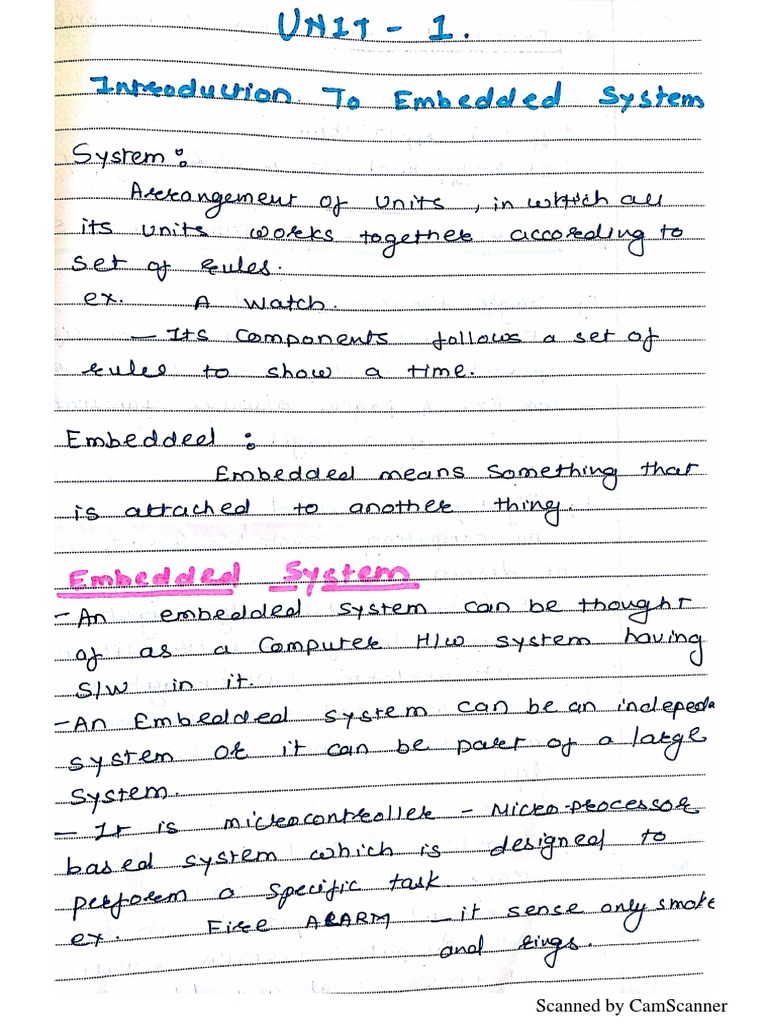 UNIT - 1.
Introduction To Embedded System
System :
Arrangement of units, in which all
its units works together according to
set of rules.
ex. A watch.
- Its components follows a set of
rules to show a time.
Embedded :
Embedded means something that
is attached to another thing.
Embedded System
- An embedded system can be thought
of as a computer H/w system having
S/w in it.
- An Embedded system can be an indepeda
system or it can be part of a large
system.
- It is microcontroller - Micro-processor
based system which is designed to
perform a specific task
ex. Fire ALARM - it sense only smoke
and rings.
Scanned by CamScanner